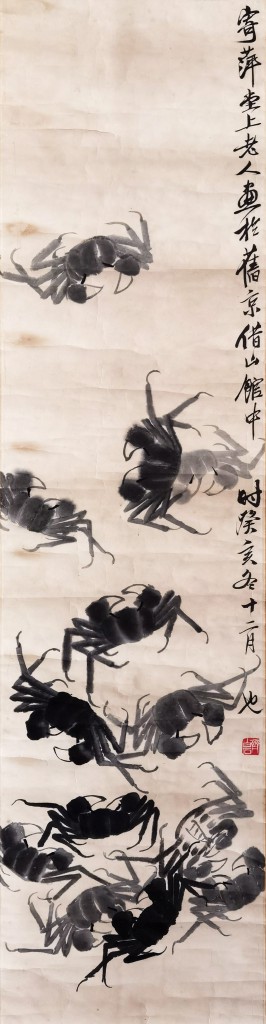 寄萍堂上老人画於舊京借山館中時癸亥冬十二月也